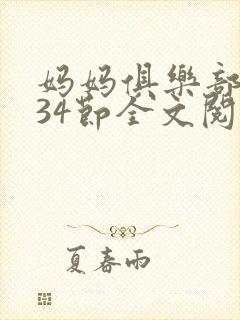 妈妈俱樂部
34節全文閱
夏春雨